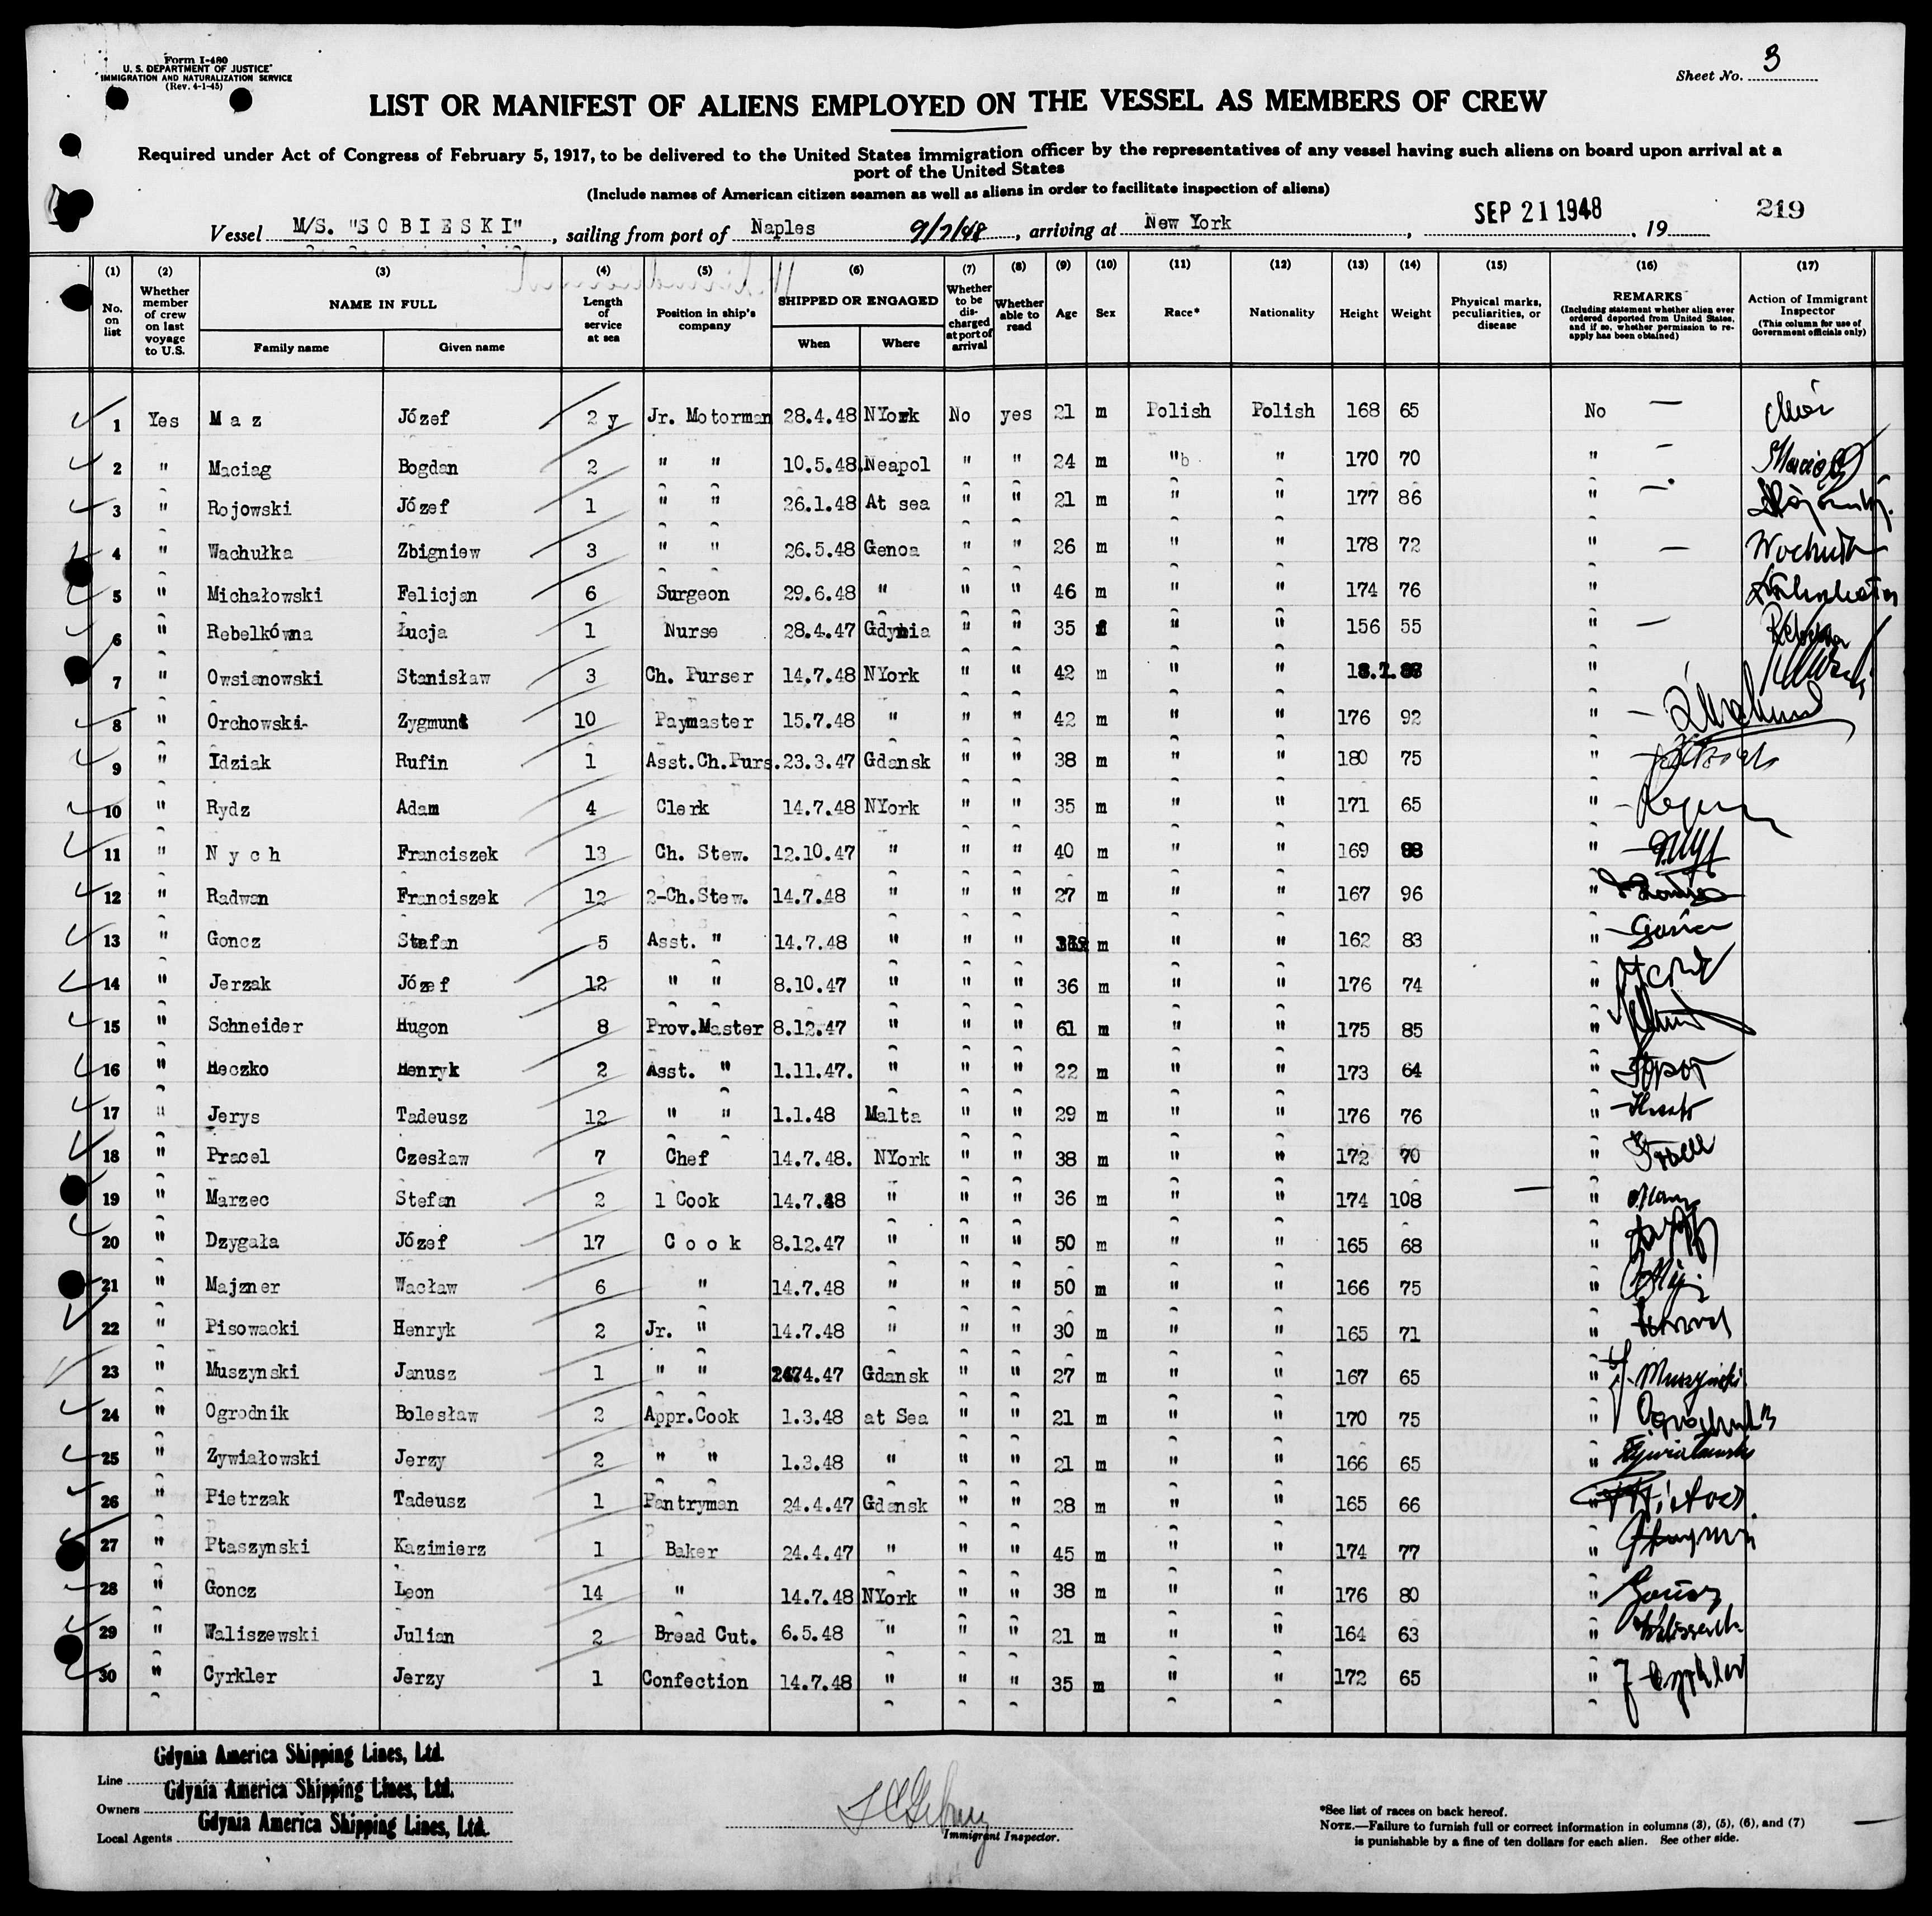 Form I-480
U. S. DEPARTMENT OF JUSTICE
IMMIGRATION AND NATURALIZATION SERVICE
(Rev. 4-1-45)
Sheet No. 3
LIST OR MANIFEST OF ALIENS EMPLOYED ON THE VESSEL AS MEMBERS OF CREW
Required under Act of Congress of February 5, 1917, to be delivered to the United States immigration officer by the representatives of any vessel having such aliens on board upon arrival at a
port of the United States
(Include names of American citizen seamen as well as aliens in order to facilitate inspection of aliens)
219
Vessel M/S. "S O B I E S K I", sailing from port of Naples 9/7/48, arriving at New York, SEP 21 1948, 19
(1) (2) (3) (4) (5) (6) (7) (8) (9) (10) (11) (12) (13) (14) (15) (16) (17)
No. on list
Whether member of crew on last voyage to U.S.
NAME IN FULL
Family name Given name
Length of service at sea
Position in ship's company
SHIPPED OR ENGAGED
When Where
Whether to be discharged at port of arrival
Whether able to read
Age Sex Race* Nationality Height Weight
Physical marks, peculiarities, or disease
REMARKS
(Including statement whether alien ever ordered deported from United States, and if so, whether permission to reapply has been obtained)
Action of Immigrant Inspector
(This column for use of Government officials only)
1 Yes M a z Józef 2 y Jr. Motorman 28.4.48 NYork No yes 21 m Polish Polish 168 65 No —
2 " Maciag Bogdan 2 " " 10.5.48 Neapol " " 24 m "b " 170 70 " —
3 " Rojowski Józef 1 " " 26.1.48 At sea " " 21 m " " 177 86 " —
4 " Wachułka Zbigniew 3 " " 26.5.48 Genoa " " 26 m " " 178 72 " —
5 " Michałowski Felicjan 6 Surgeon 29.6.48 " " " 46 m " " 174 76 "
6 " Rebelkówna Łucja 1 Nurse 28.4.47 Gdynia " " 35 f " " 156 55 " —
7 " Owsianowski Stanisław 3 Ch. Purser 14.7.48 NYork " " 42 m " " "
8 " Orchowski Zygmunt 10 Paymaster 15.7.48 " " " 42 m " " 176 92 " —
9 " Idziak Rufin 1 Asst.Ch.Purs. 23.3.47 Gdansk " " 38 m " " 180 75 "
10 " Rydz Adam 4 Clerk 14.7.48 NYork " " 35 m " " 171 65 "
11 " N y c h Franciszek 13 Ch. Stew. 12.10.47 " " " 40 m " " 169 "
12 " Radwan Franciszek 12 2-Ch.Stew. 14.7.48 " " " 27 m " " 167 96 "
13 " Goncz Stefan 5 Asst. " 14.7.48 " " " m " " 162 83 "
14 " Jerzak Józef 12 " " 8.10.47 " " " 36 m " " 176 74 "
15 " Schneider Hugon 8 Prov.Master 8.12.47 " " " 61 m " " 175 85 "
16 " Heczko Henryk 2 Asst. " 1.11.47. " " " 22 m " " 173 64 "
17 " Jerys Tadeusz 12 " " 1.1.48 Malta " " 29 m " " 176 76 "
18 " Pracel Czesław 7 Chef 14.7.48. NYork " " 38 m " " 172 70 "
19 " Marzec Stefan 2 1 Cook 14.7.48 " " " 36 m " " 174 108 — "
20 " Dzygała Józef 17 C o o k 8.12.47 " " " 50 m " " 165 68 "
21 " Majzner Wacław 6 " 14.7.48 " " " 50 m " " 166 75 "
22 " Pisowacki Henryk 2 Jr. " 14.7.48 " " " 30 m " " 165 71 "
23 " Muszynski Janusz 1 " " 4.47 Gdansk " " 27 m " " 167 65 " J. Muszyński
24 " Ogrodnik Bolesław 2 Appr.Cook 1.3.48 at Sea " " 21 m " " 170 75 "
25 " Zywiałowski Jerzy 2 " " 1.3.48 " " " 21 m " " 166 65 "
26 " Pietrzak Tadeusz 1 Pantryman 24.4.47 Gdansk " " 28 m " " 165 66 "
27 " Ptaszynski Kazimierz 1 Baker 24.4.47 " " " 45 m " " 174 77 "
28 " Goncz Leon 14 " 14.7.48 NYork " " 38 m " " 176 80 "
29 " Waliszewski Julian 2 Bread Cut. 6.5.48 " " " 21 m " " 164 63 "
30 " Cyrkler Jerzy 1 Confection 14.7.48 " " " 35 m " " 172 65 "
Line Gdynia America Shipping Lines, Ltd.
Owners Gdynia America Shipping Lines, Ltd.
Local Agents Gdynia America Shipping Lines, Ltd.
Immigrant Inspector.
*See list of races on back hereof.
NOTE.—Failure to furnish full or correct information in columns (3), (5), (6), and (7)
is punishable by a fine of ten dollars for each alien. See other side.